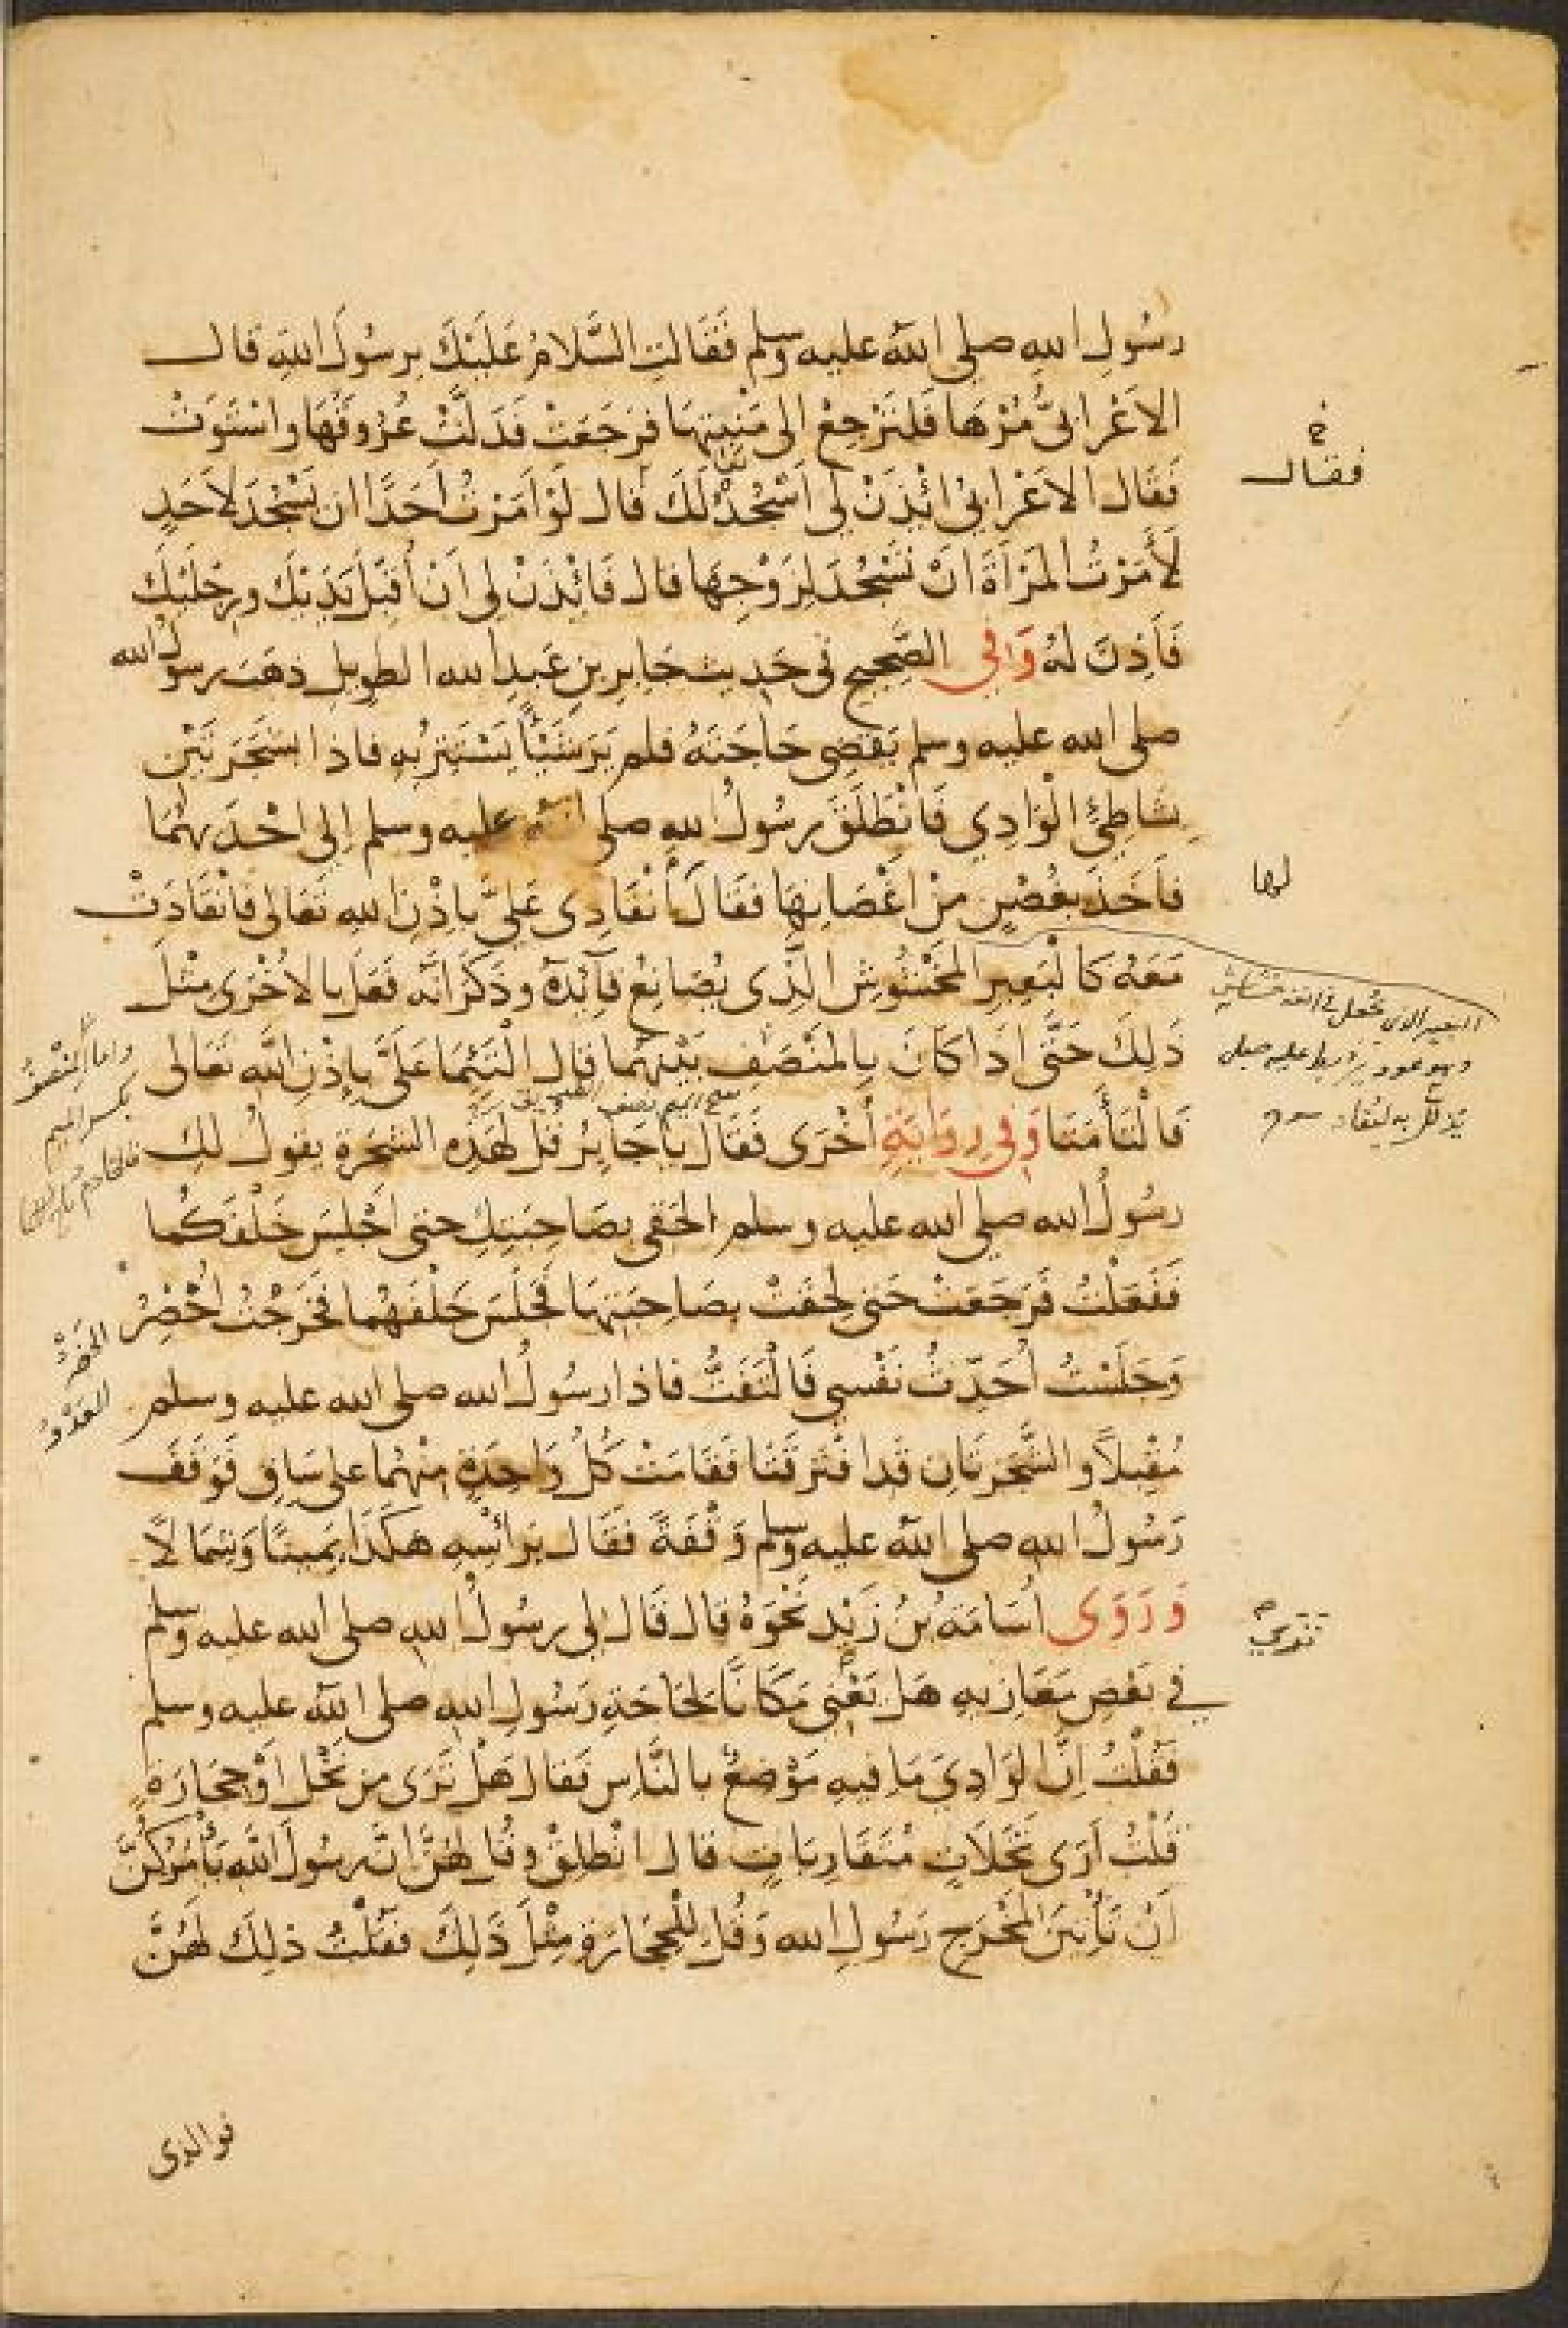 رَسُولِ اللهِ صلى اللهُ عليه وسلم فَقَالَتِ السَّلَامُ عَلَيْكَ يرسُولَ اللهِ قال
الاَعْرَابىُّ مُرْهَا فَلتَرْجِعْ الى مَنْبِتِهَا فرَجَعَتْ فَدَلَّتْ عُرُوقَهَا واسْتَوَتْ
فَقَال الاَعْرَابىْ ائْذَنْ لِى اَسْجُدْ لَكَ قال لَوْ اَمَرْتُ اَحَدًا ان يَسْجُدَ لاَحَدٍ
لَأَمَرْتُ المَرْاَةَ انْ تَسْجُدَ لِزَوْجِهَا قال فَائْذَنْ لى اَنْ أُقَبِّلَ يَدَيْكَ ورِجْلَيْكَ
فَاَذِنَ لهُ وَفى الصَّحِيحِ فى حَدِيث جَابِرِ بنِ عَبدِ الله الطوِيلِ ذهَبَ رسولُ الله
صلى الله عليه وسلم يَقضِى حَاجَتَهُ فلم يَرَ شَيْأً يَسْتَتِرُ بِه فاذا بشَجَرَتَيْن
بِشَاطِئِ الْوَادِي فَانْطَلَقَ رسُولُ اللهِ صلى الله عليه وسلم إلى احْدَيهُمَا
فاَخَذَ بغُصْنٍ مِنْ اَغْصَانِهَا فقَالَ اْنْقَادِى عَلىَّ باِذْنِ اللهِ تعَالى فانْقَادَتْ
مَعَهُ كَالْبَعِيرِ المَخْشُوشِ الَّذِى يُصَانِعُ قآئِدَهُ وذَكَرَ انَّه فَعَلَ بالاُخْرَى مِثْلَ
ذَلِكَ حَتَّى اذَا كَانَ بِالمَنْصَفِ بَيْنَهُمَا قال الْتَئِمَا عَلَىَّ بِاِذْنِ اللهِ تَعَالى
فَالْتَأَمَتَا وَفى رِوَايَةٍ أُخْرَى فَقَالَ يَا جَابِرُ قُلْ لِهَذِهِ الشجَرَةِ يقولُ لكِ
رسُولُ الله صلى الله عليه وسلم الحَقى بصَاحِبَتِكِ حتى اَجْلِسَ خَلْفَكُما
فَفَعَلْتُ فَرَجَعَتْ حَتى لحِقَتْ بصَاحِبَتِهَا فَجَلَسَ خَلْفَهُما فخَرَجْتُ اُحْضِرُ
وَجَلَسْتُ اُحَدِّثُ نَفْسِي فَالْتَفَتُّ فاذا رسُولُ الله صلى الله عليه وسلم
مُقْبِلاً والشَّجَرَتَانِ قَدِ افْتَرَقَتَا فَقَامَتْ كُلُّ وَاحِدَةٍ مِنْهُما على سَاقٍ فَوَقَفَ
رَسُولُ اللهِ صلى اللهُ عليه وسلم وَقْفَةً فَقَال بِرَأْسِهِ هكَذَا يَمِينًا وَشِمَالًا
وَرَوَى اُسَامَةُ بنُ زَيْد نَحْوَهُ قال قَالَ لِى رسُولُ اللهِ صلى الله عليه وسلم
في بَعْضِ مَغَازِيهِ هَل يَعْنِى مَكَانًا لحَاجَةِ رَسُولِ اللهِ صلى الله عليه وسلم
فَقُلْتُ اِنَّ الوَادِيَ مَا فيهِ مَوْضِعٌ بالنَّاسِ فَقال هَلْ تَرَى مِن نَخْلٍ اَوْ حِجَارَةٍ
قُلْتُ اَرَى نَخَلَاتٍ مُتَقَارِبَاتٍ قال انْطلِقْ وقُل لهُنَّ اِنَّ رسُولَ اللهِ يَأْمُرُكُنَّ
اَنْ تَأْتِينَ لمَخْرَجِ رَسُولِ الله وَقُل لِلْحِجَارَةِ مِثْلَ ذَلِكَ فقُلْتُ ذلِكَ لَهُنَّ
فوالذى
فقال
لهما
البعير الذى يُجعل فى انفه خشاش
وهو عود يربط عليه حبل
يذلل به لينقاد
واما المِنْصَفُ
بكسر الميم
فالخادم
الحُضْرُ
العَدْوُ